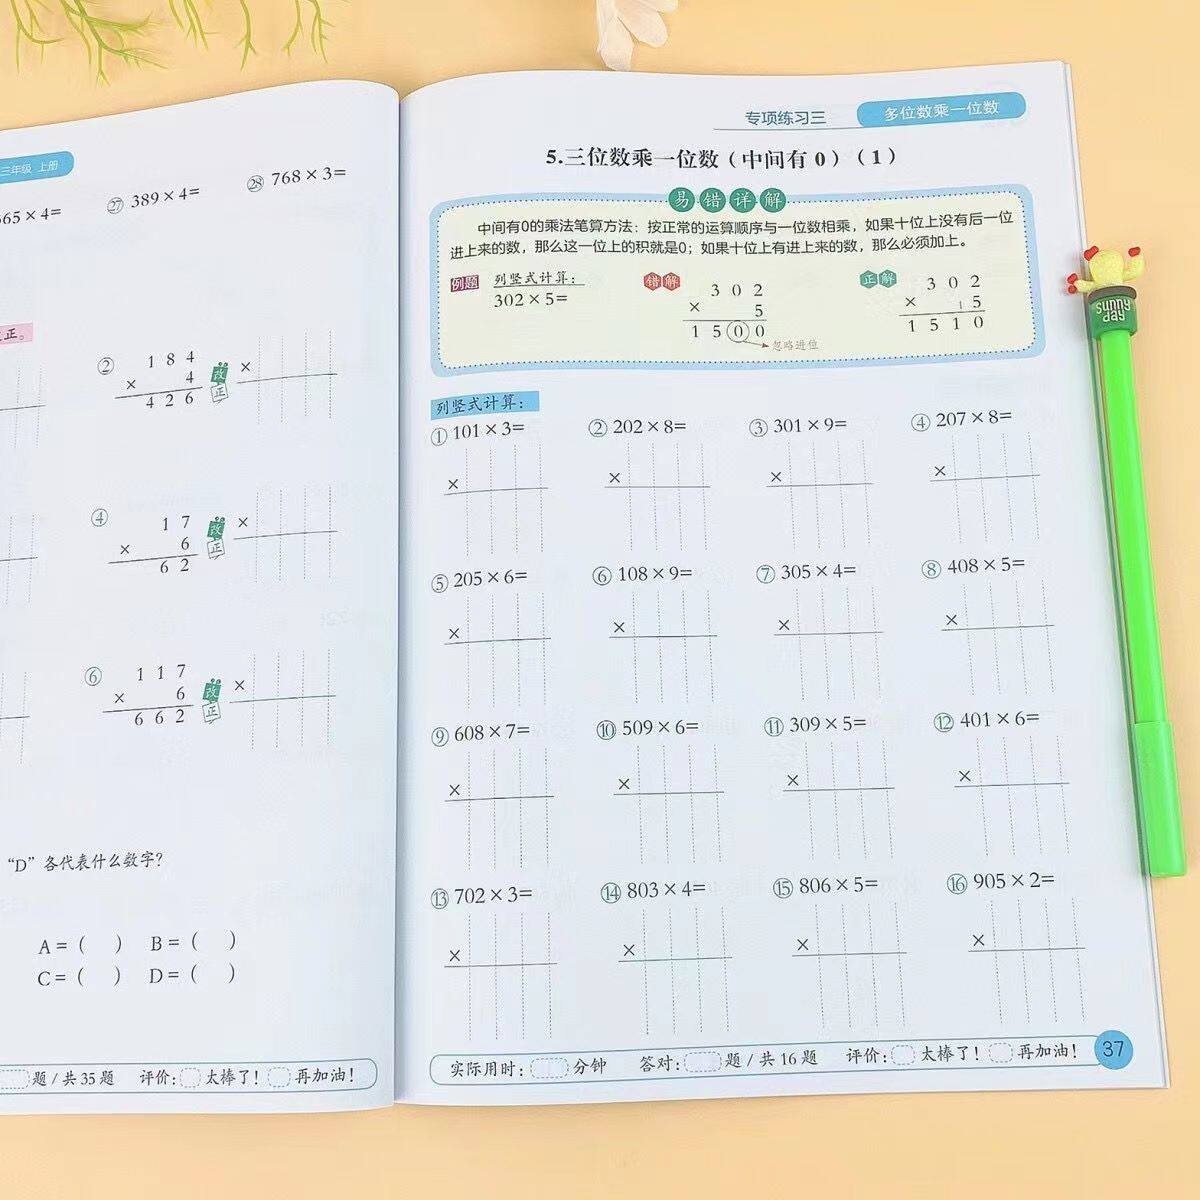 三年级 上册
65×4=
㉗ 389×4=
㉘ 768×3=
正。
② 1 8 4
× 4
4 2 6
改正
×
④ 1 7
× 6
6 2
改正
×
⑥ 1 1 7
× 6
6 6 2
改正
×
“D”各代表什么数字?
A=( ) B=( )
C=( ) D=( )
题/共35题 评价: 太棒了! 再加油!
专项练习三 多位数乘一位数
5.三位数乘一位数(中间有0)(1)
易错详解
中间有0的乘法笔算方法:按正常的运算顺序与一位数相乘,如果十位上没有后一位
进上来的数,那么这一位上的积就是0;如果十位上有进上来的数,那么必须加上。
例题 列竖式计算:
302×5=
错解
3 0 2
× 5
1 5 0 0
忽略进位
正解
3 0 2
× 1 5
1 5 1 0
列竖式计算:
① 101×3= ② 202×8= ③ 301×9= ④ 207×8=
× × × ×
⑤ 205×6= ⑥ 108×9= ⑦ 305×4= ⑧ 408×5=
× × × ×
⑨ 608×7= ⑩ 509×6= ⑪ 309×5= ⑫ 401×6=
× × × ×
⑬ 702×3= ⑭ 803×4= ⑮ 806×5= ⑯ 905×2=
× × × ×
实际用时: 分钟 答对: 题/共16题 评价: 太棒了! 再加油! 37
sunny
day